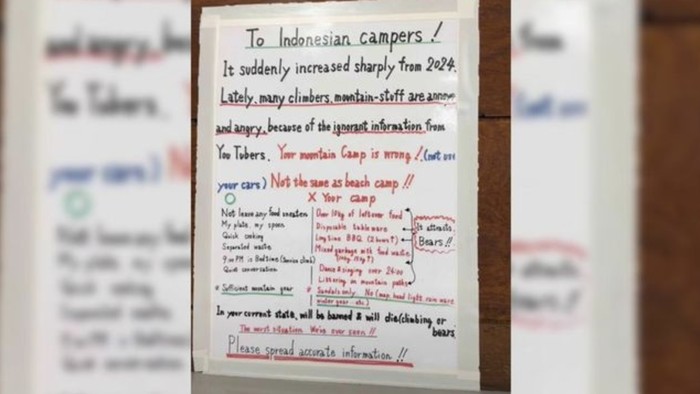 To Indonesian campers!
It suddenly increased sharply from 2024.
Lately, many climbers, mountain-stuff are annoye
and angry, because of the ignorant information from
You Tubers. Your mountain Camp is wrong!! (not use
your cars) Not the same as beach camp!!
○ X Your camp
Not leave any food uneaten
My plate, my spoon
Quick cooking
Separated waste
9:00 PM is Bedtime
Quiet conversation
* Sufficient mountain gear
Over 10kg of leftover food
Disposable tableware
Longtime BBQ (2 hours↑)
Mixed garbage with food waste
Dance & singing over 24:00
Littering on mountain paths
* Sandals only. No (map, head light, rain ware
winter gear...etc)
It attracts
Bears!!
In your current state, will be banned & will die (climbing or
bears
The worst situation We've ever seen!!
Please spread accurate information!!